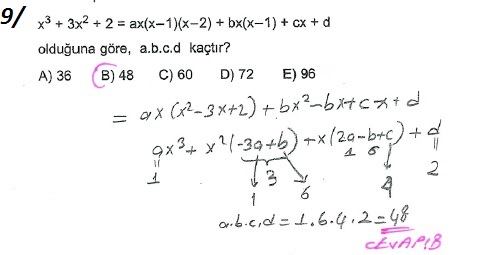 9/ x³ + 3x² + 2 = ax(x–1)(x–2) + bx(x–1) + cx + d
olduğuna göre, a.b.c.d kaçtır?
A) 36 B) 48 C) 60 D) 72 E) 96
= ax(x²-3x+2)+bx²-bx+cx+d
ax³+x²(-3a+b)+x(2a-b+c)+d
1 3 1 6 2
1 6 4
a.b.c.d=1.6.4.2=48
CEVAP:B